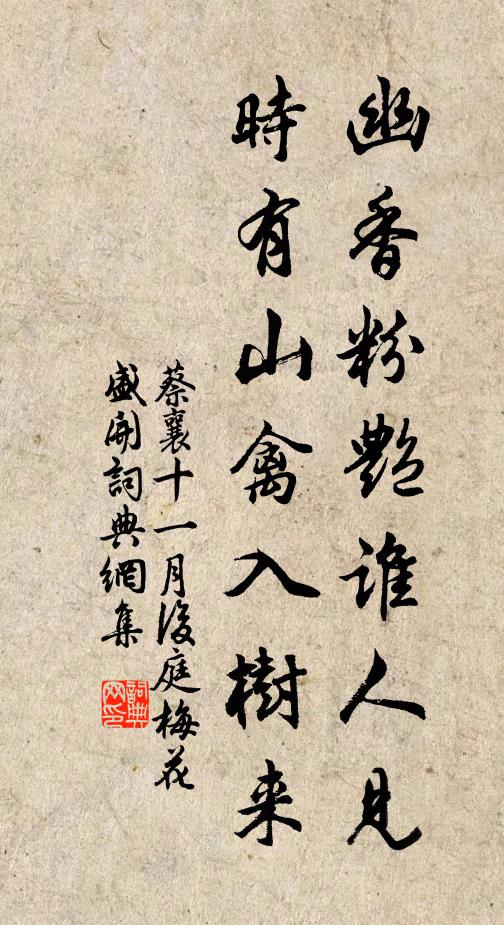 幽香粉艷谁人見
時有山禽入樹来
蔡襄十一月後庭梅花
盛開詞典網集
詞典网印